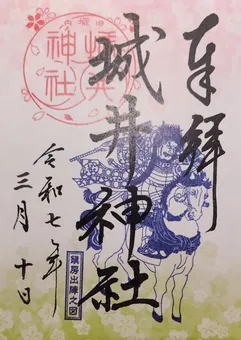 奉拝
城井神社
令和七年
三月十日
城井
神社
鎮房出陣之図